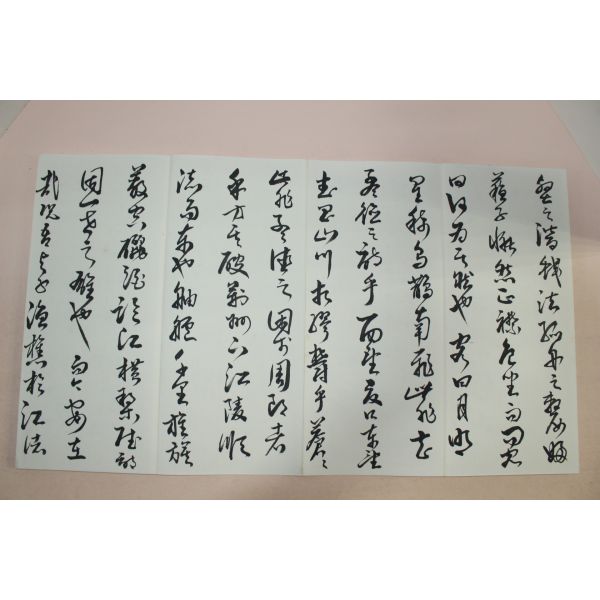 壑之潛蛟泣孤舟之嫠婦
蘇子愀然正襟危坐而問客
曰何為其然也客曰月明
星稀烏鵲南飛此非曹
孟德之詩乎西望夏口東望
武昌山川相繆鬱乎蒼々
此非孟德之困於周郎者
乎方其破荊州下江陵順
流而東也舳艫千里旌旗
蔽空釃酒臨江橫槊賦詩
固一世之雄也而今安在
哉況吾與子漁樵於江渚